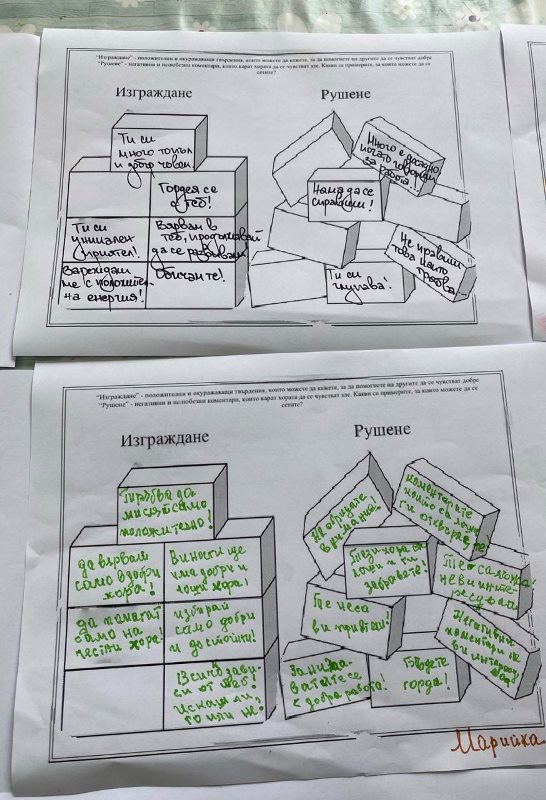 "Изграждане" - положителни и окуражаващи твърдения, които можете да кажете, за да помогнете на другите да се чувстват добре
"Рушене" - негативни и нелюбезни коментари, които карат хората да се чувстват зле. Какви са примерите, за които можете да се
сетите?
Изграждане
Рушене
Ти си
много топъл
и добър човек
Гордея се
с теб!
Ти си
уникален
приятел!
Вярвам в
теб, продължавай
да се развиваш
Зареждаш
ме с положител-
на енергия!
Обичам те!
Много е досадно
когато говориш
за работа!
Няма да се
справиш!
Не правиш
това както
трябва
Ти си
"Изграждане" - положителни и окуражаващи твърдения, които можете да кажете, за да помогнете на другите да се чувстват добре
"Рушене" - негативни и нелюбезни коментари, които карат хората да се чувстват зле. Какви са примерите, за които можете да се
сетите?
Изграждане
Рушене
Трябва да
мислят само
положително!
да вярваш
само в добри
хора!
Винаги ще
има добри и
лоши хора!
да помагат
само на
чести хора!
избирай
само добри
и достойни!
Всичко зави-
си от теб!
Искаш ли,
го или не!
Не обръщайте
внимание!
коментарите
които са лоши
ги
Тези хора са
лоши и ги
забравете!
Те са лоши,
не ви инте-
ресуват
Те не са
ви приятели!
Негативни
коментари не
ви интересуват
Занима
вайте се
с добра работа!
Бъдете
горда!
Марийка